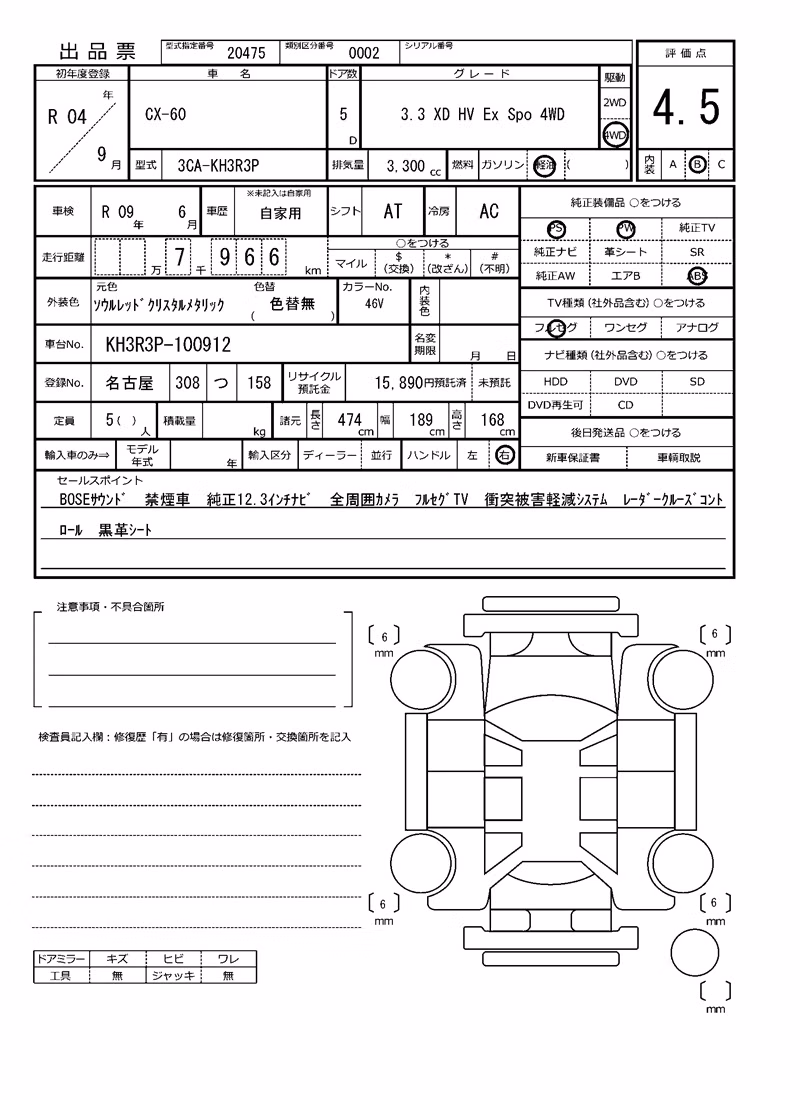 出品票 型式指定番号 20475 類別区分番号 0002 シリアル番号
評価点
4.5
初年度登録 車名 ドア数 グレード 駆動
R 04 年 9 月 CX-60 5 D 3.3 XD HV Ex Spo 4WD 2WD 4WD
型式 3CA-KH3R3P 排気量 3,300 cc 燃料 ガソリン 軽油 ( ) 内装 A B C
車検 R 09 年 6 月 車歴 ※未記入は自家用 自家用 シフト AT 冷房 AC
走行距離 万 7 千 9 6 6 km ○をつける
マイル $ (交換) * (改ざん) # (不明)
外装色 元色 ソウルレッドクリスタルメタリック 色替 色替無 ( ) カラーNo. 46V 内装色
車台No. KH3R3P-100912 名変期限 月 日
登録No. 名古屋 308 つ 158 リサイクル預託金 15,890円預託済 未預託
定員 5 ( ) 人 積載量 kg 諸元 長さ 474 cm 幅 189 cm 高さ 168 cm
輸入車のみ⇒ モデル年式 年 輸入区分 ディーラー 並行 ハンドル 左 右
純正装備品 ○をつける
PS PW 純正TV
純正ナビ 革シート SR
純正AW エアB ABS
TV種類(社外品含む)○をつける
フルセグ ワンセグ アナログ
ナビ種類(社外品含む)○をつける
HDD DVD SD
DVD再生可 CD
後日発送品 ○をつける
新車保証書 車輌取説
セールスポイント
BOSEサウンド 禁煙車 純正12.3インチナビ 全周囲カメラ フルセグTV 衝突被害軽減システム レーダークルーズコント
ロール 黒革シート
注意事項・不具合箇所
検査員記入欄:修復歴「有」の場合は修復箇所・交換箇所を記入
ドアミラー キズ ヒビ ワレ
工具 無 ジャッキ 無
6 mm
6 mm
6 mm
6 mm
mm